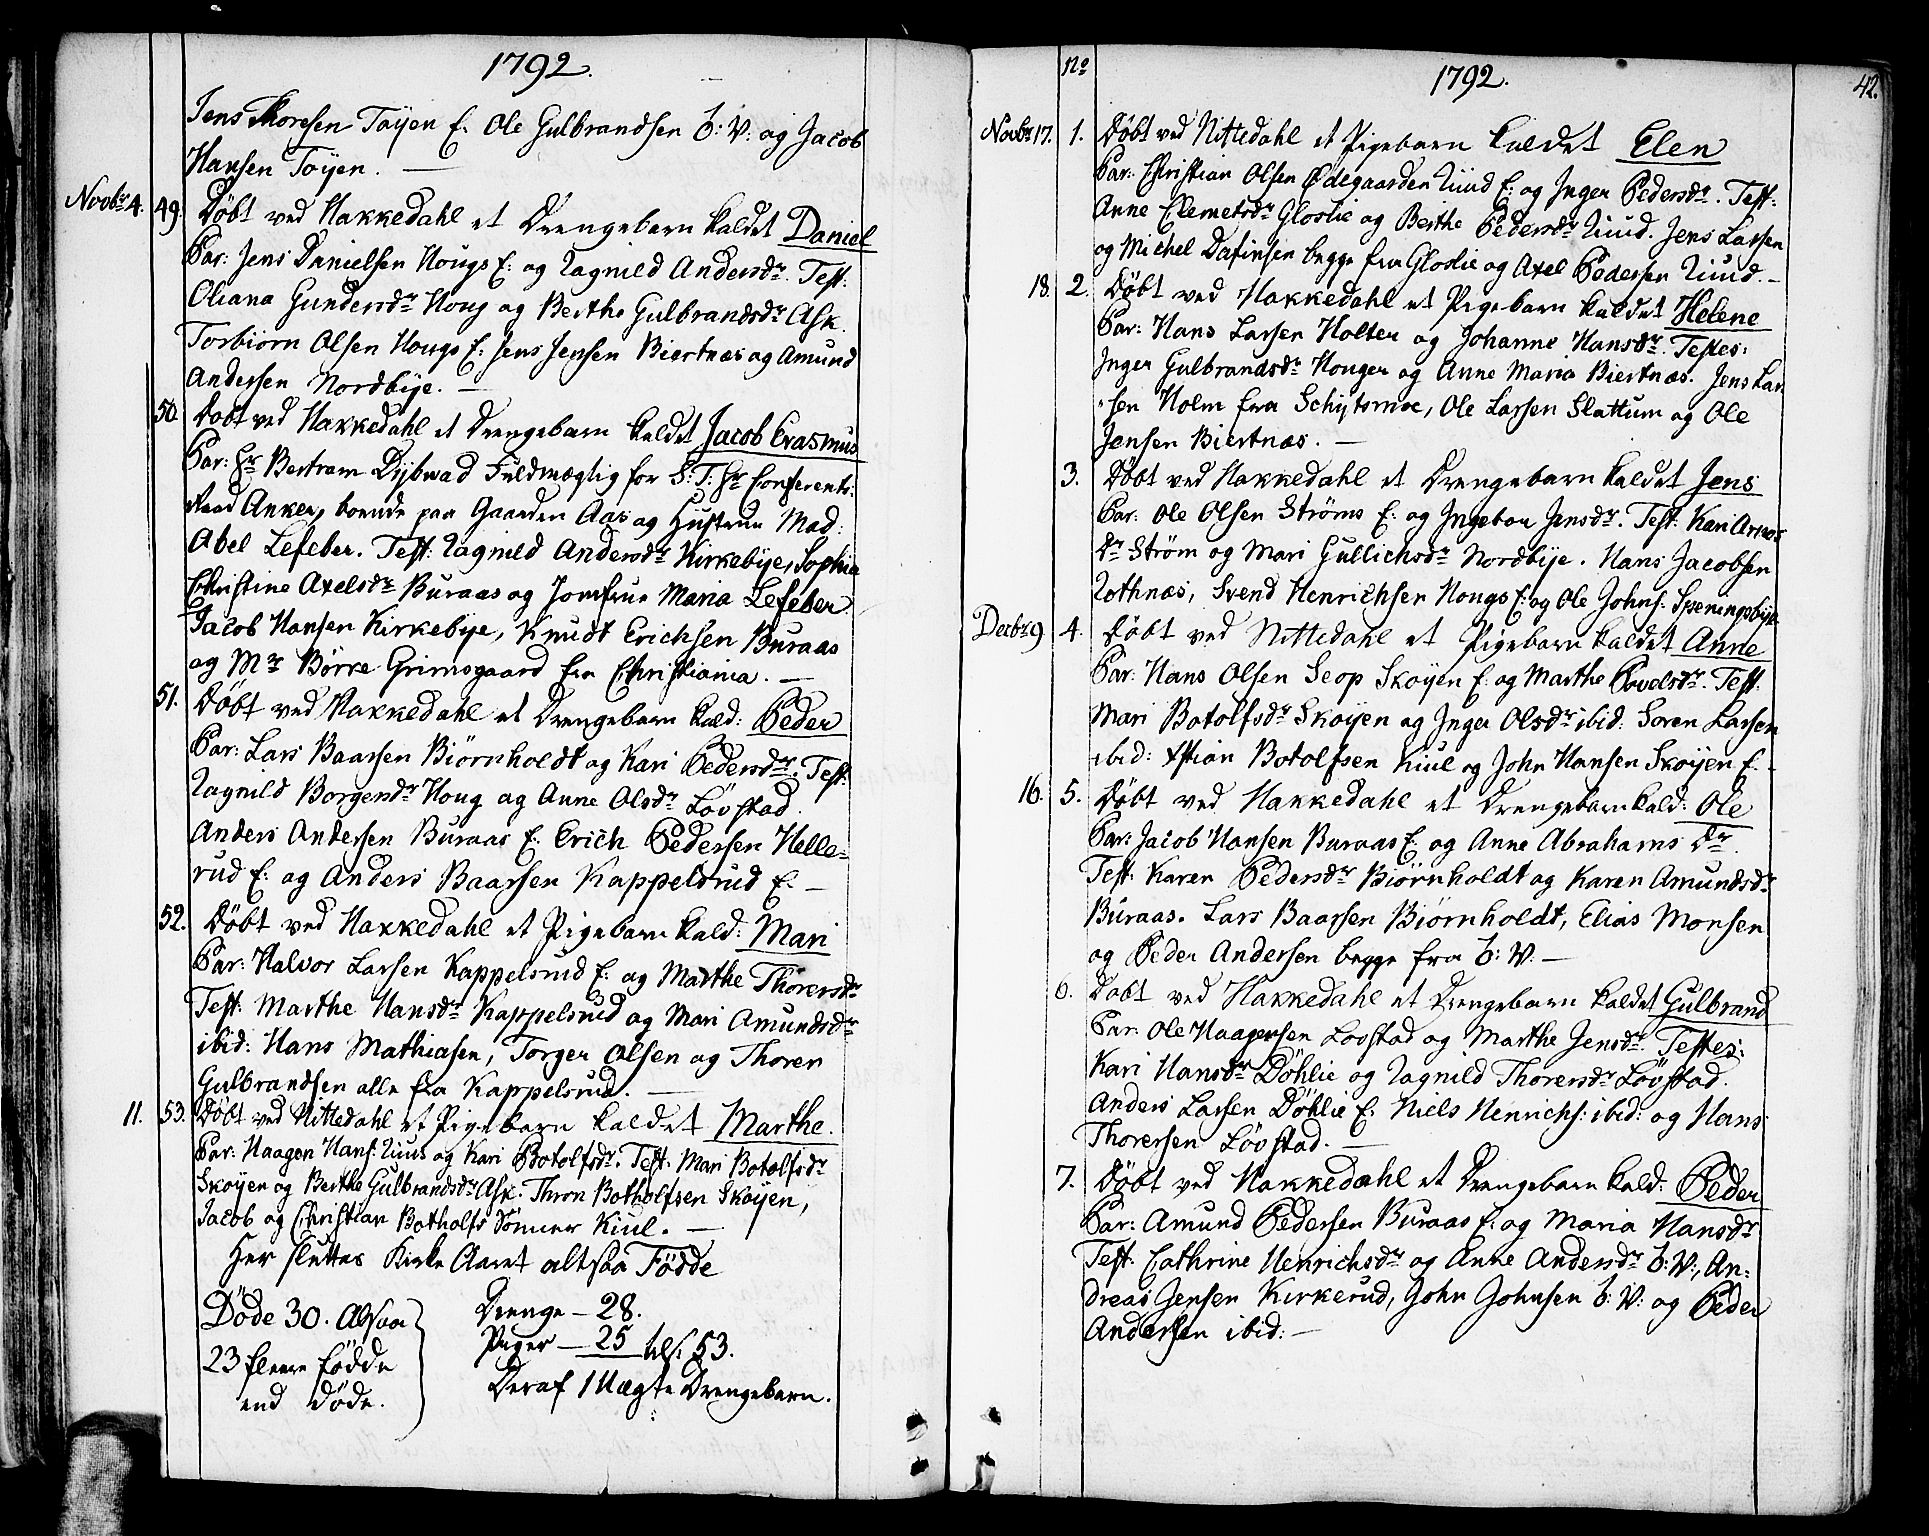 1792.
Jens Thoresen Toÿen E. Ole Gulbrandsen b: V: og Jacob
Hansen Toÿen. —
Novbr 4. 49. Döbt ved Hakkedahl et Drengebarn kaldet Daniel
Par: Jens Danielsen Hougs E: og Ragnild Andersdr. Test:
Oliana Gundersdr Houg og Berthe Gulbrandsdr Ask.
Torbiörn Olsen Hougs E: Jens Jensen Biertnæs og Amund
Andersen Nordbÿe. —
50. Döbt ved Hakkedahl et Drengebarn kaldet Jacob Erasmus
Par: Hr Bertram Dÿbwad Fuldmægtig for S: T: Hr Conferents:
Raad Anker, boende paa Gaarden Aas og Hustrue Mad:
Abel Lefeber. Test: Ragnild Andersdr Kirkebÿe, Sophia
Christine Axelsdr Buraas og Jomfrue Maria Lefeber
Jacob Hansen Kirkebÿe, Knudt Erichsen Buraas
og Mr Börre Grimsgaard fra Christiania. —
51. Döbt ved Hakkedahl et Drengebarn kald: Peder
Par: Lars Baarsen Biörnholdt og Kari Pedersdr. Test:
Ragnild Borgersdr Houg og Anne Olsdr Lövstad.
Anders Andersen Buraas E. Erich Pedersen Helle=
rud E: og Anders Baarsen Kappelsrud E. —
52. Döbt ved Hakkedahl et Pigebarn kald: Mari
Par: Halvor Larsen Kappelsrud E: og Marthe Thoresdr
Test: Marthe Hansdr Kappelsrud og Mari Amundsdr
ibid: Hans Mathiasen, Torger Olsen og Thoren
Gulbrandsen alle fra Kappelsrud. —
11. 53. Döbt ved Nittedahl et Pigebarn kaldet Marthe.
Par: Haagen Hans: Ruus og Kari Botolfsdr. Test: Mari Botolfsdr
Skoÿen og Berthe Gulbrandsdr Ask. Thron Botholfsen Skoÿen,
Jacob og Christian Botholfs Sönner Kiul. —
Her sluttes Kirke Aaret altsaa Födde
Döde 30. Altsaa
23 fleere födde
end döde.
Drenge — 28.
Piger — 25 tils. 53.
Deraf 1 Uægte Drengebarn.
No 1792. 42.
Novbr 17. 1. Döbt ved Nittedahl et Pigebarn kaldet Elen
Par: Christian Olsen Ödegaarden Ruud E: og Inger Pedersdr. Test:
Anne Clemetsdr Gloslie og Berthe Pedersdr Ruud. Jens Larsen
og Michel Dafinsen begge fra Gloslie og Axel Pedersen Ruud. —
18. 2. Döbt ved Hakkedahl et Pigebarn kaldet Helene
Par: Hans Larsen Holter og Johanne Hansdr. Testes:
Inger Gulbrandsdr Houger og Anne Maria Biertnæs. Jens Lar
sen Holm fra Schÿtsmoe, Ole Larsen Slattum og Ole
Jensen Biertnæs. —
3. Döbt ved Hakkedahl et Drengebarn kaldet Jens
Par: Ole Olsen Ströms E: og Ingebor Jensdr. Test: Kari Arnes
Dr Ström og Mari Gullichsdr Nordbÿe. Hans Jacobsen
Rothnæs, Svend Henrichsen Hougs E: og Ole Johns: Spenningsbÿe
Decbr 9 4. Döbt ved Nittedahl et Pigebarn kaldet Anne
Par: Hans Olsen Seop Skoÿen E: og Marthe Povelsdr. Test:
Mari Botolfsdr Skoÿen og Inger Olsdr ibid: Soren Larsen
ibid: Xstian Botolfsen Kiul og John Hansen Skoÿen E. —
16. 5. Döbt ved Hakkedahl et Drengebarn kald: Ole
Par: Jacob Hansen Buraas E: og Anne Abrahams Dr.
Test: Karen Pedersdr Biörnholdt og Karen Amundsdr
Buraas. Lars Baarsen Biörnholdt, Elias Monsen
og Peder Andersen begge fra b: V. —
6. Döbt ved Hakkedahl et Drengebarn kaldet Gulbrand
Par: Ole Haagensen Lovstad og Marthe Jensdr. Testes:
Kari Hansdr Döhlie og Ragnild Thoresdr Lövstad.
Anders Larsen Döhlie E. Niels Henrichs: ibid: og Hans
Thorersen Lövstad. —
7. Döbt ved Hakkedahl et Drengebarn kald: Peder
Par: Amund Pedersen Buraas E: og Maria Hansdr
Test: Cathrine Henrichsdr og Anne Andersdr b: V:, An=
dreas Jensen Kirkerud, John Johnsen b: V: og Peder
Andersen ibid: —